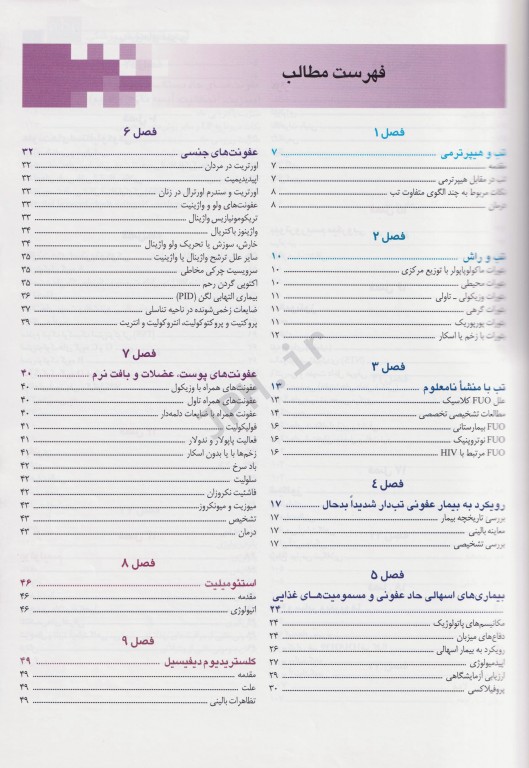 فهرست مطالب
فصل ۱
تب و هیپرترمی ۷
مقدمه ۷
تب در مقابل هیپرترمی ۷
نکات مربوط به چند الگوی متفاوت تب ۸
درمان ۸
فصل ۲
تب و راش ۱۰
بثورات ماکولوپاپولار با توزیع مرکزی ۱۰
بثورات محیطی ۱۰
بثورات وزیکولی ـ تاولی ۱۱
بثورات گرهی ۱۱
بثورات پورپوریک ۱۱
بثورات با زخم یا اسکار ۱۲
فصل ۳
تب با منشأ نامعلوم ۱۳
علل FUO کلاسیک ۱۳
مطالعات تشخیصی تخصصی ۱۴
FUO بیمارستانی ۱۶
FUO نوتروپنیک ۱۶
FUO مرتبط با HIV ۱۶
فصل ۴
رویکرد به بیمار عفونی تب‌دار شدیداً بدحال ۱۷
بررسی تاریخچه بیمار ۱۷
معاینه بالینی ۱۷
بررسی تشخیصی ۱۷
فصل ۵
بیماری‌های اسهالی حاد عفونی و مسمومیت‌های غذایی
۲۴
مکانیسم‌های پاتولوژیک ۲۴
دفاع‌های میزبان ۲۴
رویکرد به بیمار اسهالی ۲۶
اپیدمیولوژی ۲۷
ارزیابی آزمایشگاهی ۲۹
پروفیلاکسی ۳۰
فصل ۶
عفونت‌های جنسی ۳۲
اورتریت در مردان ۳۲
اپیدیدیمیت ۳۲
اورتریت و سندرم اورترال در زنان ۳۳
عفونت‌های ولو و واژینیت ۳۳
تریکومونیازیس واژینال ۳۳
واژینوز باکتریال ۳۴
خارش، سوزش یا تحریک ولو واژینال ۳۴
سایر علل ترشح واژینال یا واژینیت ۳۵
سرویسیت چرکی مخاطی ۳۵
اکتوپی گردن رحم ۳۵
بیماری التهابی لگن (PID) ۳۶
ضایعات زخمی‌شونده در ناحیه تناسلی ۳۷
پروکتیت و پروکتوکولیت، انتروکولیت و انتریت ۳۹
فصل ۷
عفونت‌های پوست، عضلات و بافت نرم ۴۰
عفونت‌های همراه با وزیکول ۴۰
عفونت‌های همراه تاول ۴۰
عفونت همراه با ضایعات دلمه‌دار ۴۰
فولیکولیت ۴۱
فعالیت پاپولار و ندولار ۴۱
زخم‌ها با یا بدون اسکار ۴۱
باد سرخ ۴۲
سلولیت ۴۲
فاشئیت نکروزان ۴۲
میوزیت و میونکروز ۴۳
تشخیص ۴۳
درمان ۴۳
فصل ۸
استئومیلیت ۴۶
مقدمه ۴۶
اتیولوژی ۴۶
فصل ۹
کلستریدیوم دیفیسیل ۴۹
مقدمه ۴۹
علت ۴۹
تظاهرات بالینی ۴۹